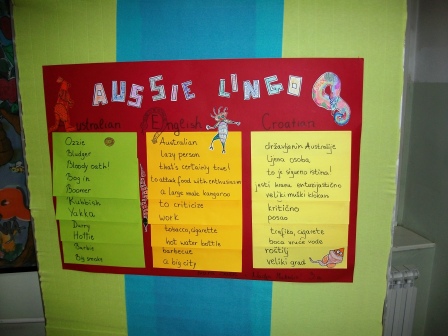 AUSSIE LINGO
Australian English Croatian
Ozzie Australian državljanin Australije
Bludger lazy person lijena osoba
Bloody oath! that's certainly true! to je sigurno istina!
Bog in to attack food with enthusiasm jesti hranu entuzijastično
Boomer a large male kangaroo veliki muški klokan
Rubbish to criticize kritično
Yakka work posao
Durry tobacco, cigarette trafika, cigarete
Hottie hot water bottle boca vruće vode
Barbie barbecue roštilj
Big smoke a big city veliki grad